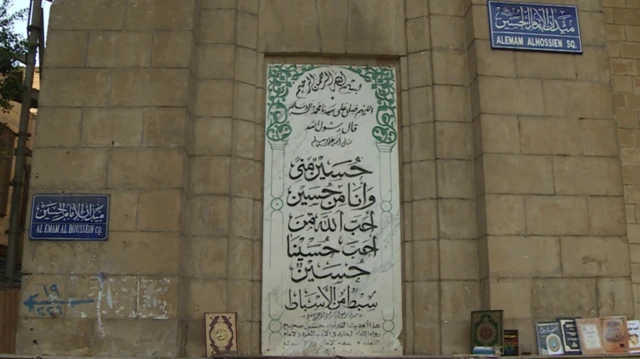 ميدان الإمام الحسين
ALEMAM ALHOSSIEN SQ.
بسم الله الرحمن الرحيم
اللهم صلى على سيدنا محمد وآله وسلم
قال رسول الله
صلى الله عليه وسلم
حُسَين منى
وأنا من حسين
أحب الله من
أحب حسينا
حسين
سبط من الأسباط
ميدان الإمام الحسين
AL EMAM AL HOUSSEIN SQ.
١٩
٢٢٦